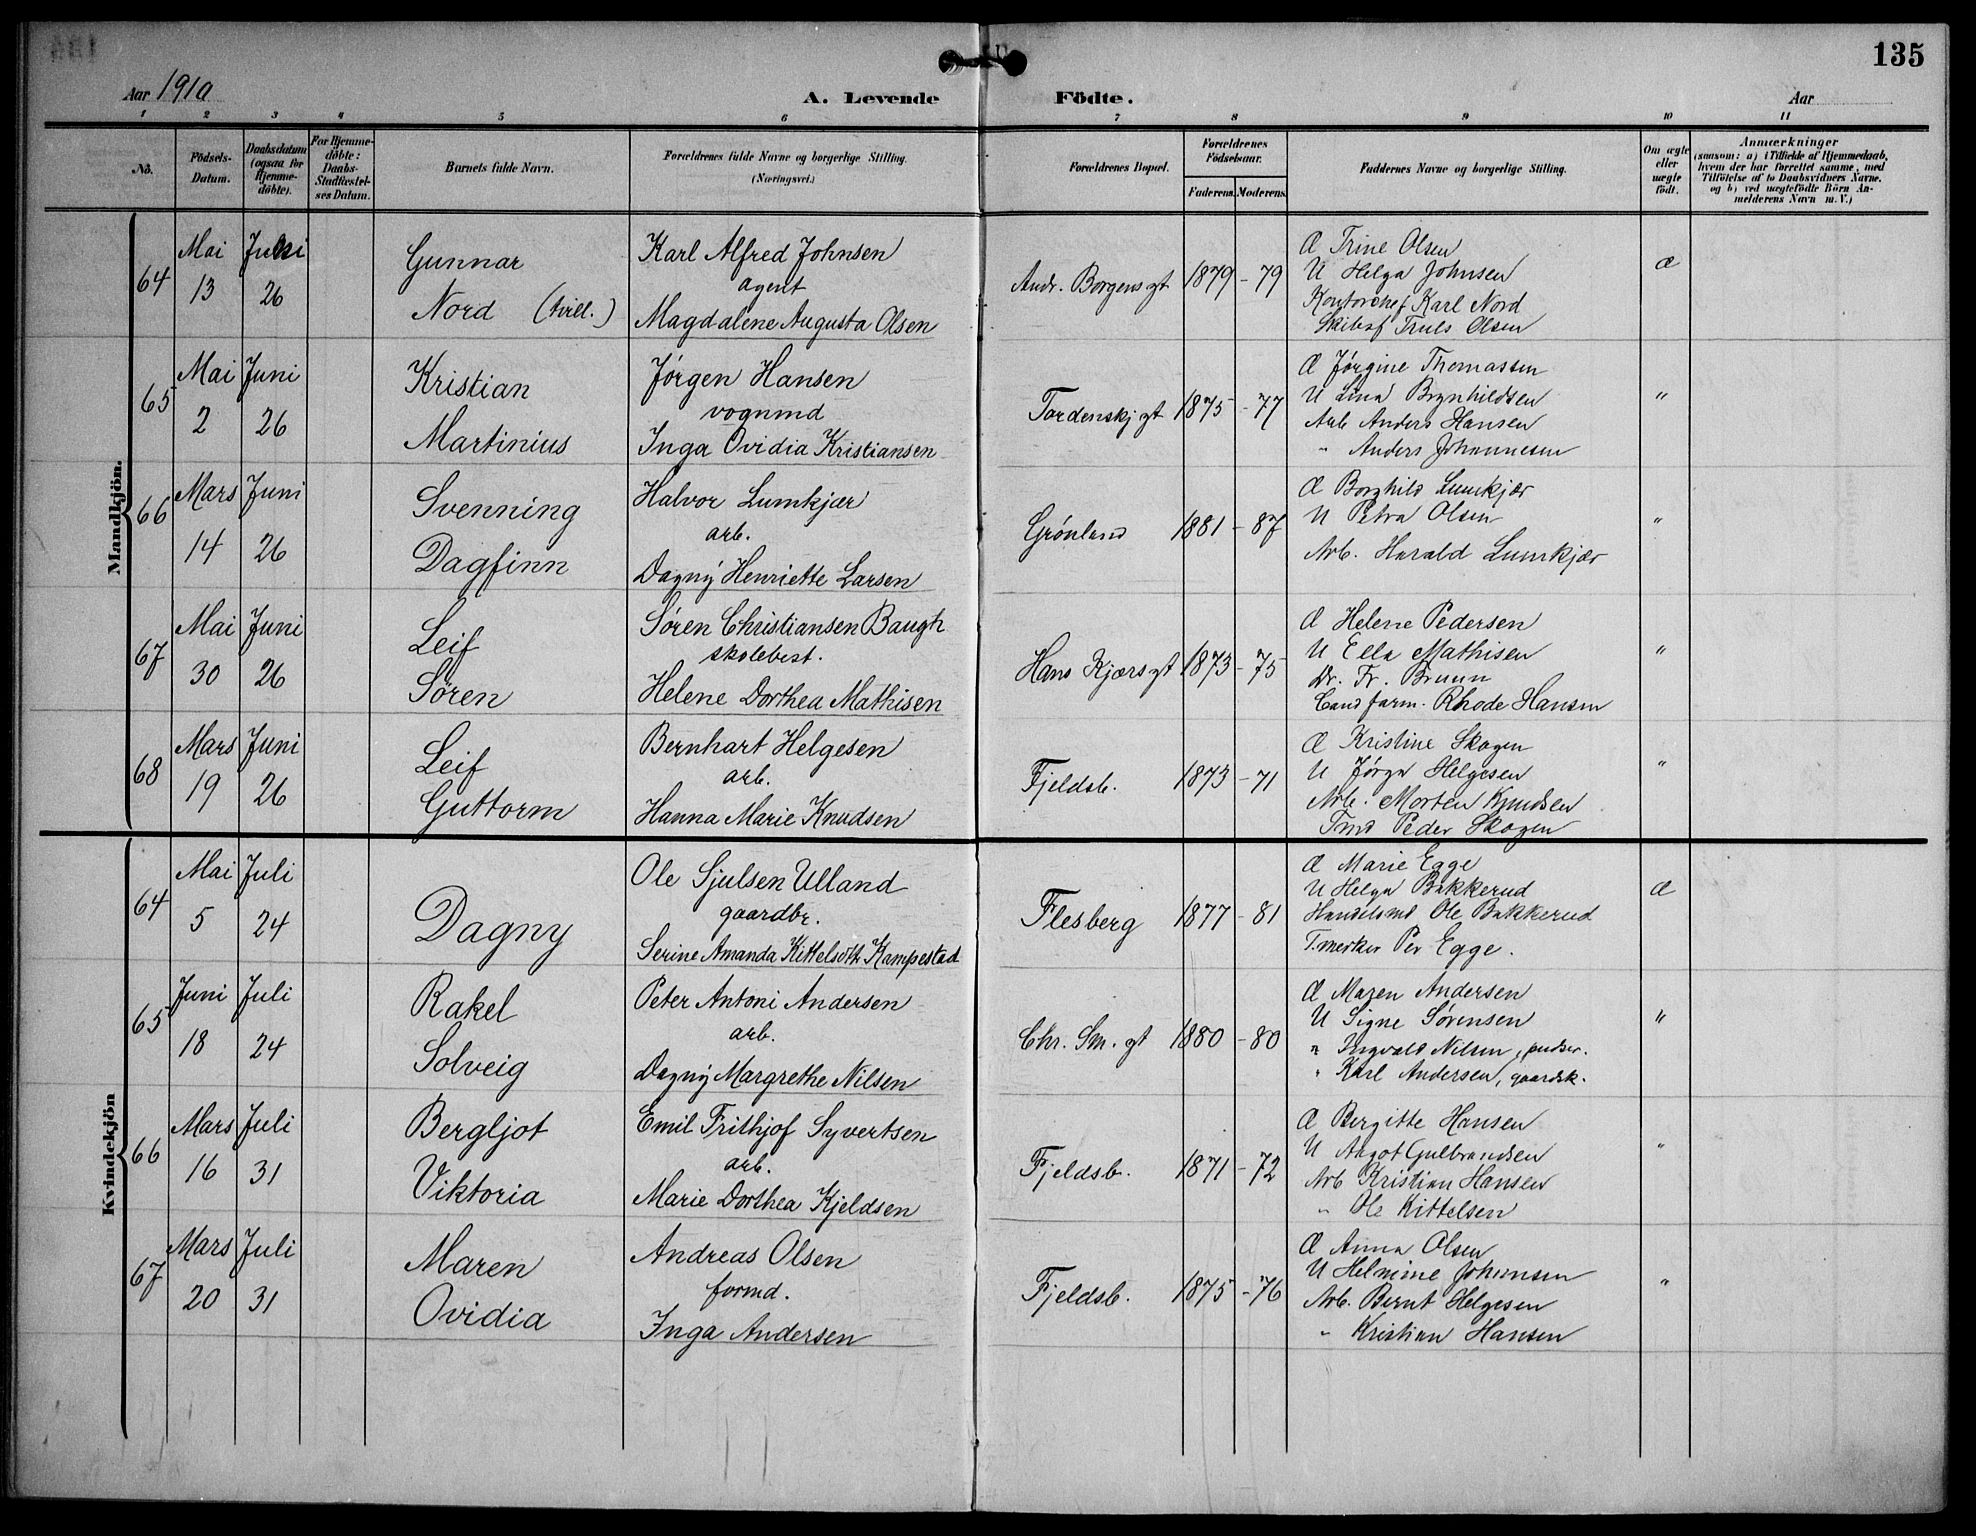 135
Aar 1910
A. Levende Födte.
Aar
1 2 3 4 5 6 7 8 9 10 11
No.
Födsels-Datum.
Daabsdatum (ogsaa for Hjemme-döbte).
For Hjemme-döbte: Daabs-Stadfæstel-ses Datum.
Barnets fulde Navn.
Forældrenes fulde Navne og borgerlige Stilling.
(Næringsvei.)
Forældrenes Bopæl.
Forældrenes Födselsaar.
Faderens. Moderens.
Faddernes Navne og borgerlige Stilling.
Om ægte eller uægte født.
Anmærkninger
(saasom: a) i Tilfælde af Hjemmedaab,
hvem der har forrettet samme, med
Tilföielse af to Daabsvidners Navne.
og b) ved uægtefödte Börn An-
melderens Navn m. V.)
Mandkjön.
64 Mai 13 Juni 26
Gunnar
Nord (tvill.)
Karl Alfred Johnsen
agent
Magdalene Augusta Olsen
Andr. Borgens gt 1879 - 79
Æ Trine Olsen
U Helga Johnsen
Kontorchef Karl Nord
Truls Olsen
Æ
65 Mai 2 Juni 26
Kristian
Martinius
Jørgen Hansen
vognmd
Inga Ovidia Kristiansen
Tordenskj gt 1875 - 77
Æ Jørgine Thomassen
U Lina Brynhildsen
Arb Anders Hansen
" Anders Johannesen
"
66 Mars 14 Juni 26
Svenning
Dagfinn
Halvor Lumkjær
arb.
Dagny Henriette Larsen
Grønland 1881 - 87
Æ Borghild Lumkjær
U Petra Olsen
Arb. Harald Lumkjær
"
67 Mai 30 Juni 26
Leif
Søren
Søren Christiansen Baugh
skolebest.
Helene Dorthea Mathisen
Hans Kjærs gt 1873 - 75
Æ Helene Pedersen
U Ella Mathisen
Dr. Fr. Bruun
Cand farm. Rhode Hansen
"
68 Mars 19 Juni 26
Leif
Guttorm
Bernhart Helgesen
arb.
Hanna Marie Knudsen
Fjeldsb. 1873 - 71
Æ Kristine Skogen
U Jørga Helgesen
Arb. Morten Knudsen
Tmd Peder Skogen
"
Kvindekjön
64 Mai 5 Juli 24
Dagny
Ole Sjulsen Ulland
gaardbr.
Serine Amanda Kittelsdtr Kampestad
Flesberg 1877 - 81
Æ Marie Egge
U Helga Bakkerud
Handelsmd Ole Bakkerud
T.merker Per Egge.
Æ
65 Juni 18 Juli 24
Rakel
Solveig
Peter Antoni Andersen
arb.
Dagny Margrethe Nilsen
Chr. Sm. gt 1880 - 80
Æ Maren Andersen
U Signe Sørensen
" Ingvald Nilsen, pudser.
" Karl Andersen, gaardsk.
"
66 Mars 16 Juli 31
Bergljot
Viktoria
Emil Frithjof Syvertsen
arb.
Marie Dorthea Kjeldsen
Fjeldsb. 1871 - 72
Æ Bergitte Hansen
U Aagot Gulbrandsen
Arb Kristian Hansen
" Ole Kittelsen
"
67 Mars 20 Juli 31
Maren
Ovidia
Andreas Olsen
formd.
Inga Andersen
Fjeldsb. 1875 - 76
Æ Anna Olsen
U Helmine Johansen
Arb. Bernt Helgesen
" Kristian Hansen
"